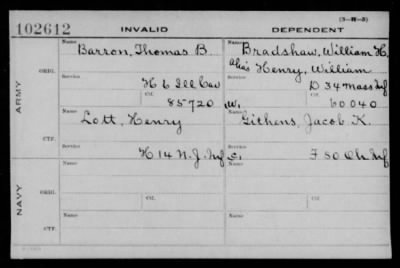 (3-H-3)
102612 INVALID DEPENDENT
ARMY
ORIG.
Name Barron, Thomas B.
Name Bradshaw, William H.
Alias Henry, William
Service H 6 Ill Cav
Service D 34 Mass Inf
Ctf. 85720
W. Ctf. 60040
CTF.
Name Lott, Henry
Name Githens, Jacob K.
Service H 14 N.J. Inf
Service F 80 Oh Inf
NAVY
ORIG.
Name
Name
Service
Ctf.
Service
Ctf.
CTF.
Name
Name
Service
Service